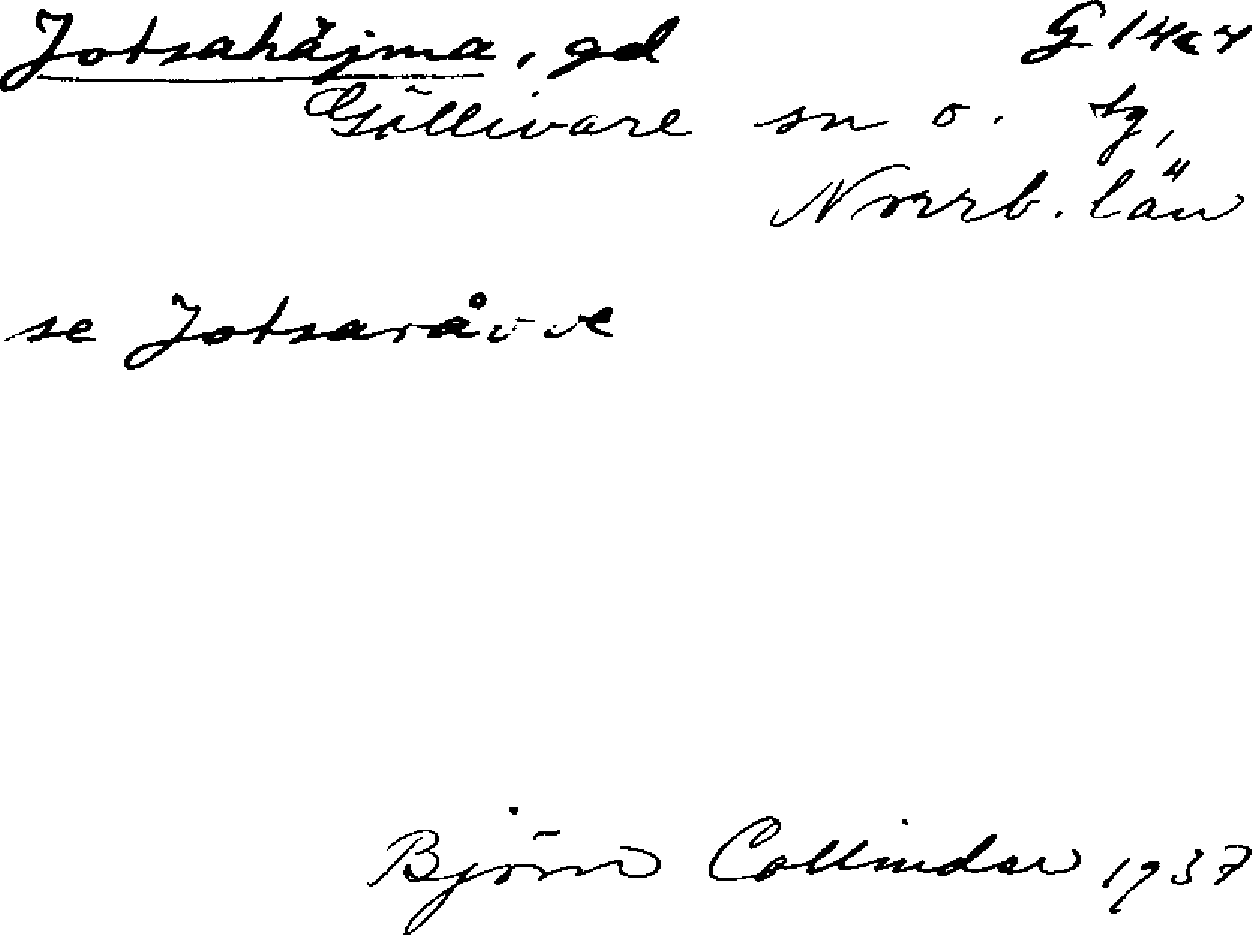 Jotsahäjma, gd G 14c4
Gällivare sn o. tg,
Norrb. län
se Jotsaråvve
Björn Collinder 1937